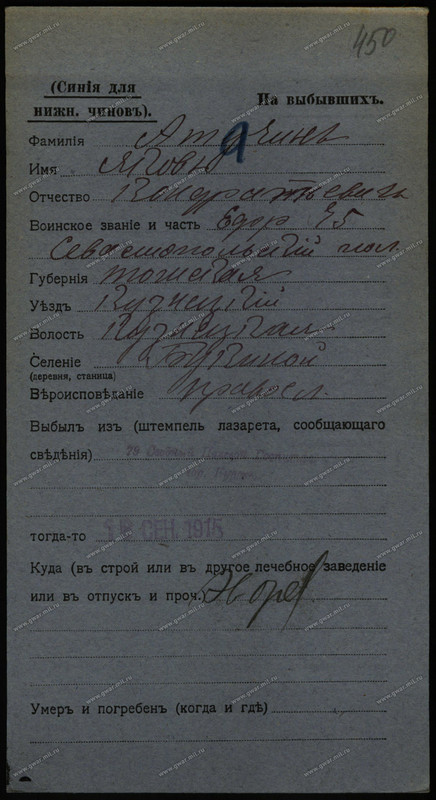 450
(Синія для
нижн. чиновъ).
На выбывшихъ.
Фамилія
Имя Яковъ
Отчество Кондратьевичъ
Воинское званіе и часть 75
Севастопольскій пол
Губернія Томская
Уѣздъ Кузнецкій
Волость Кузнецкая
Селеніе
(деревня, станица)
Вѣроисповѣданіе правосл.
Выбылъ изъ (штемпель лазарета, сообщающаго
свѣдѣнія) 79
тогда-то СЕН. 1915
Куда (въ строй или въ другое лечебное заведеніе
или въ отпускъ и проч.)
Умеръ и погребенъ (когда и гдѣ)
www.gwar.mil.ru